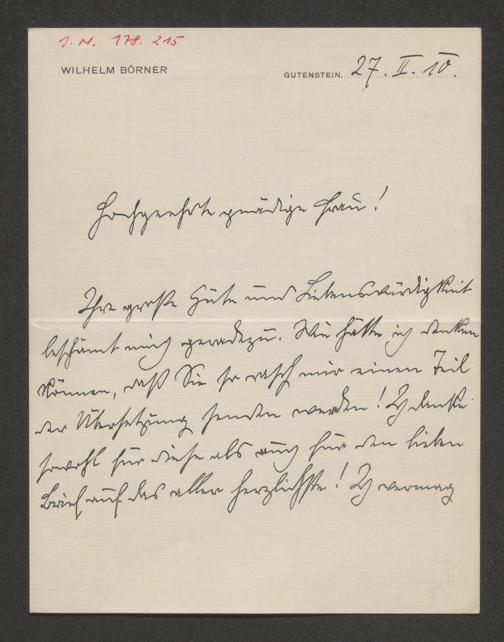 I. N. 178.215
WILHELM BÖRNER
GUTENSTEIN, 27. II. 10.
Hochgeehrte gnädige Frau!
Ihre große Güte und Liebenswürdigkeit
beschämt mich geradezu. Wie hätte ich denken
können, daß Sie so rasch mir einen Teil
der Übersetzung senden werden! Ich danke
sowohl für diese als auch für den lieben
Brief auf das aller herzlichste! Ich vermag